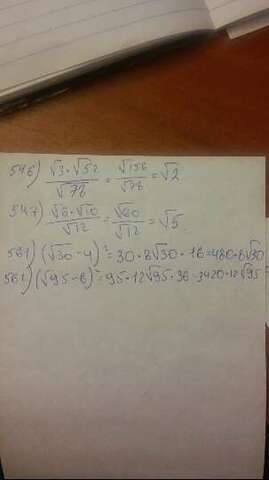 546) √3·√52/√78 = √156/√78 = √2
547) √6·√10/√12 = √60/√12 = √5.
561) (√30-4)² = 30·8√30·16=480·8√30
562) (√95-6)² = 95·12√95·36=3420·12√95